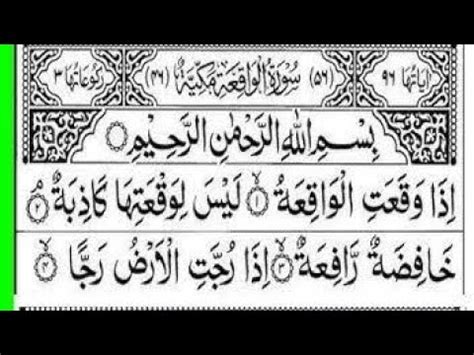 اٰیاتها ٩٦ (٥٦) سُوْرَةُ الْوَاقِعَةِ مَكِّيَّةٌ (٤٦) رکوعاتها ٣
بِسْمِ اللّٰهِ الرَّحْمٰنِ الرَّحِيْمِ
اِذَا وَقَعَتِ الْوَاقِعَةُ ١ لَيْسَ لِوَقْعَتِهَا كَاذِبَةٌ ٢
خَافِضَةٌ رَّافِعَةٌ ٣ اِذَا رُجَّتِ الْاَرْضُ رَجًّا ٤